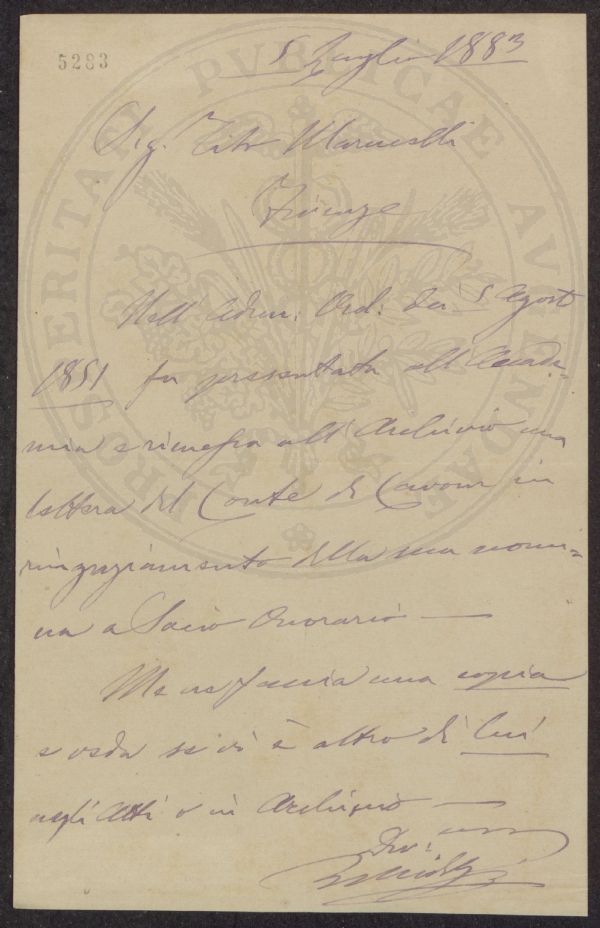 5283
5 Luglio 1883
Sig. Tito Marucelli
Firenze
Nell' Adun: Ord: dei 5 Agosto
1851 fu presentata all'Accade-
mia e rimessa all' Archivio una
lettera del Conte di Cavour in
ringraziamento della sua nomi-
na a Socio Onorario —
Me ne faccia una copia
e veda se vi è altro di lui
negli Atti o in Archivio —
PROSPERITATI PVBLICAE AVGENDAE